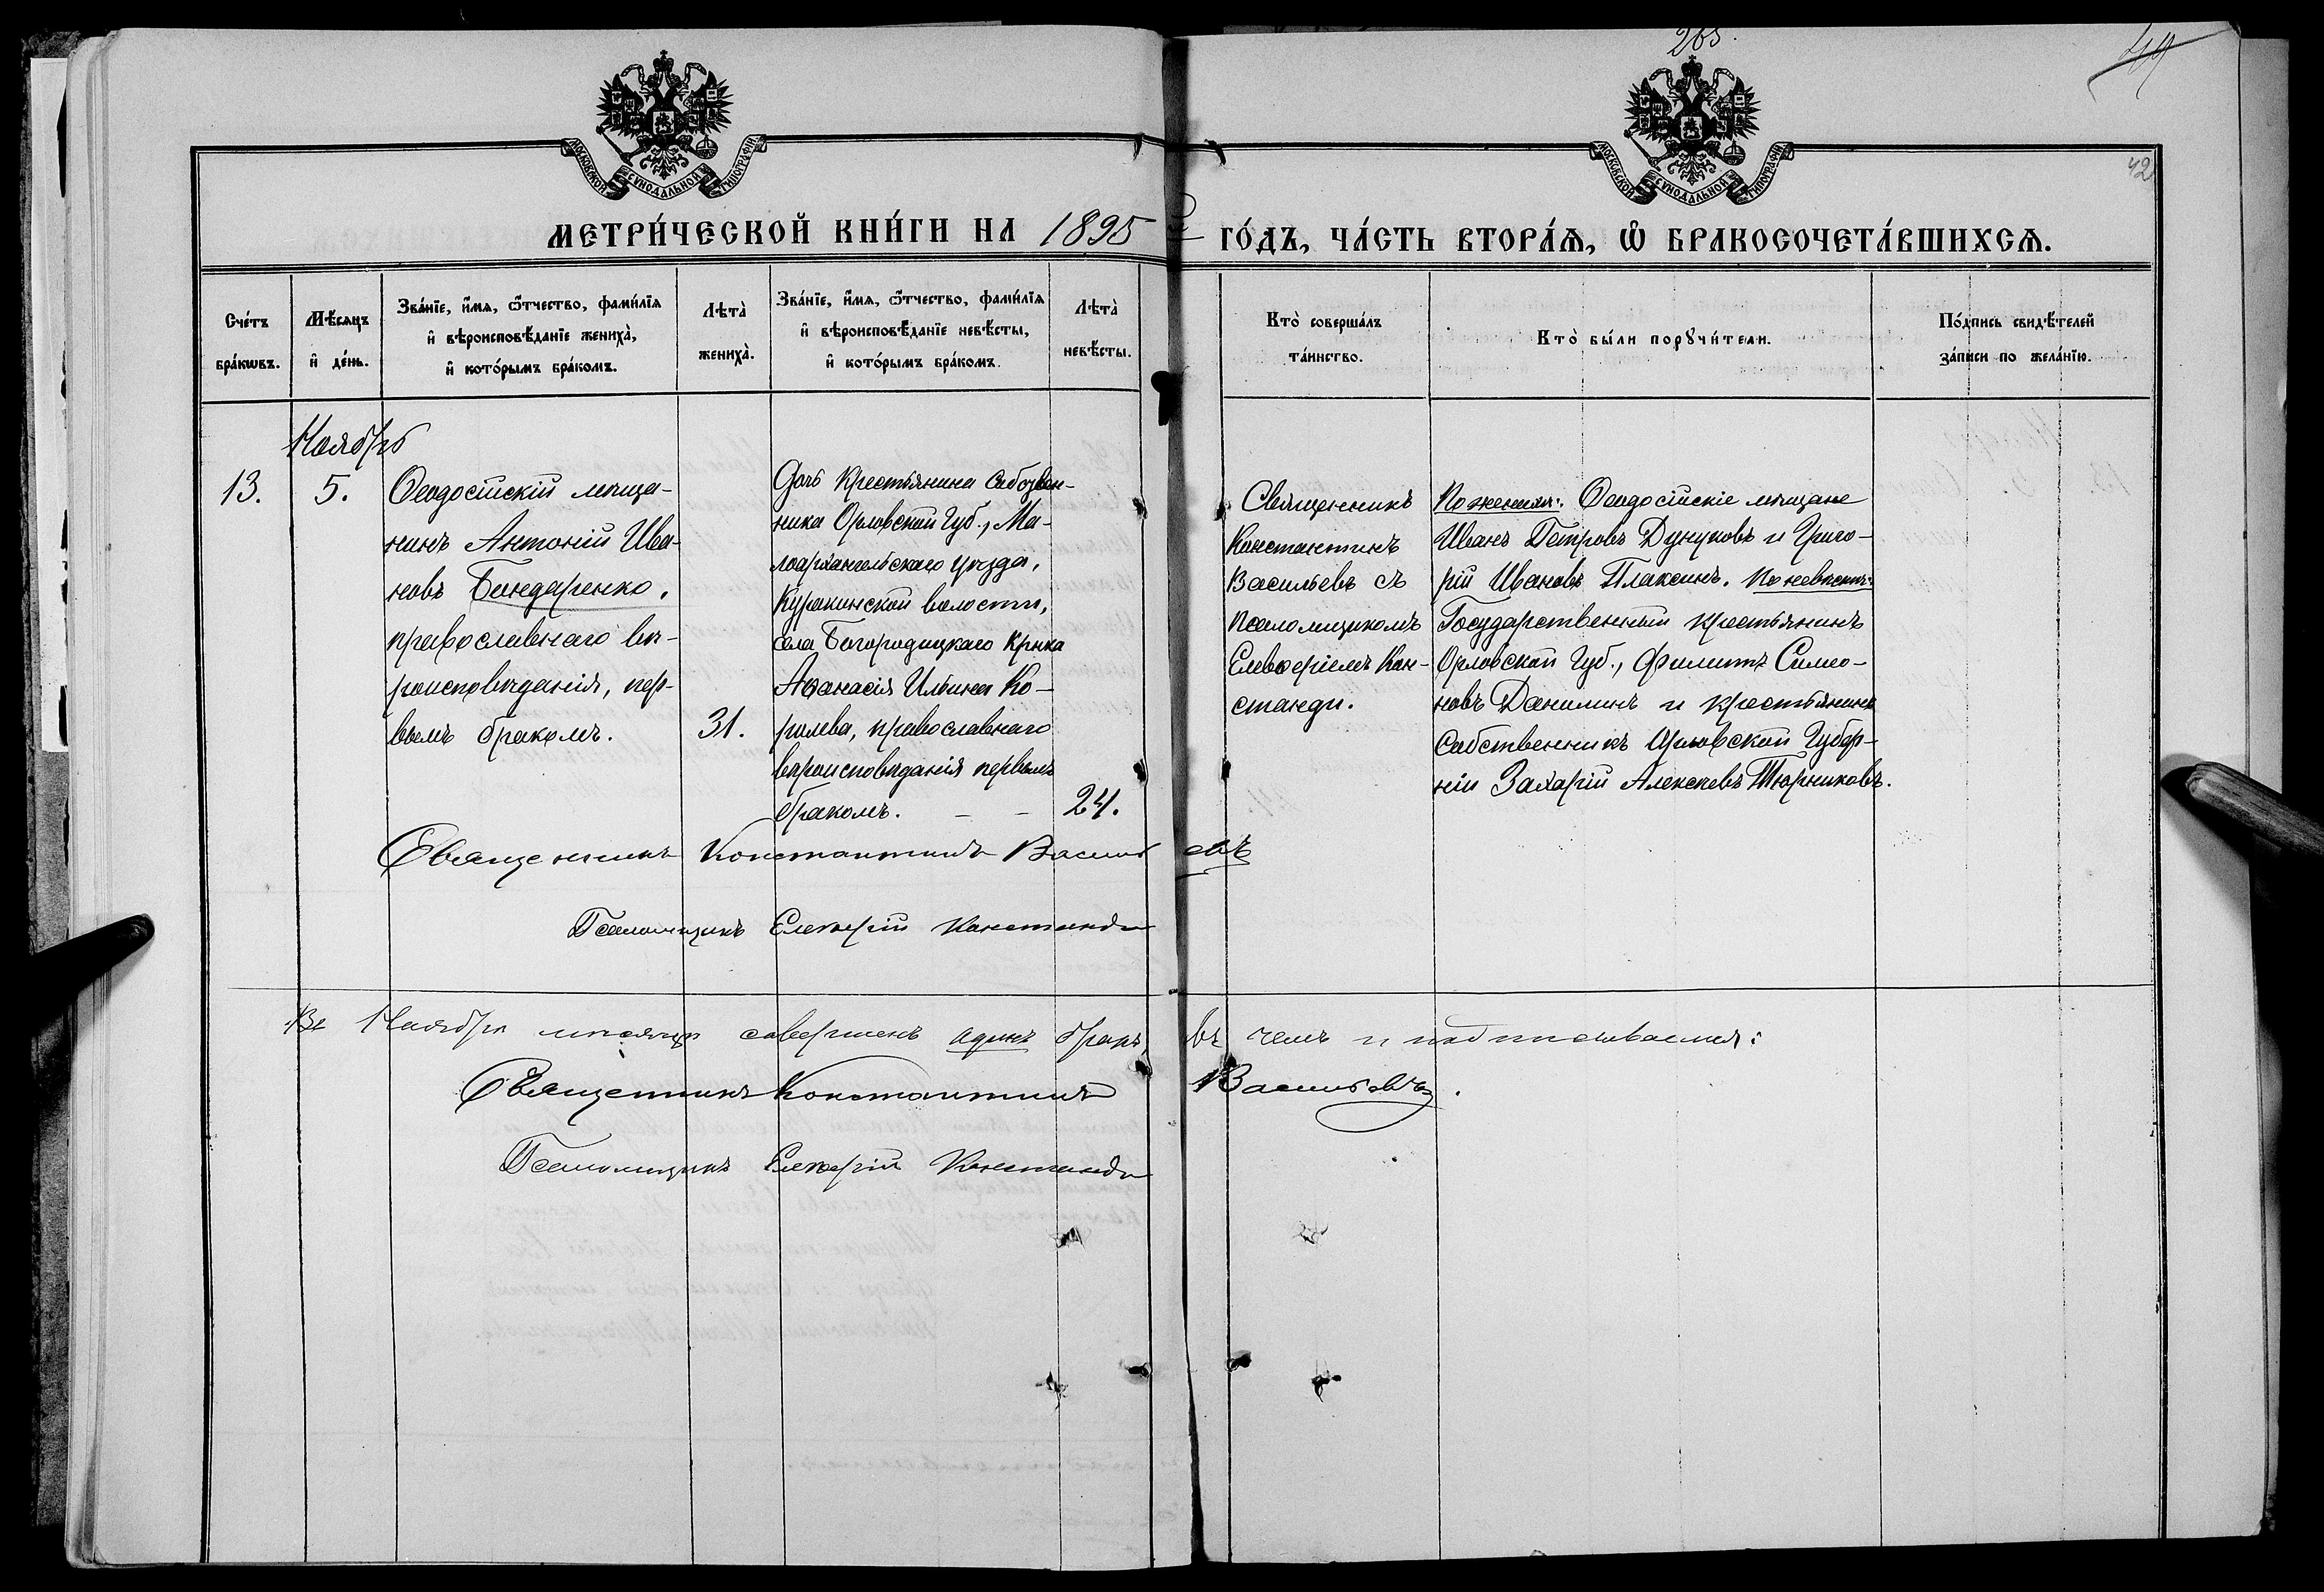 265.
42
МОСКОВСКОЙ СѴНОДАЛЬНОЙ ТИПОГРАФІИ
МОСКОВСКОЙ СѴНОДАЛЬНОЙ ТИПОГРАФІИ
МЕТРИ́ЧЕСКОЙ КНИ́ГИ НА 1895 ГО́ДЪ, ЧА́СТЬ ВТОРА́Ѧ, Ѿ БРАКОСОЧЕТА́ВШИХСѦ.
Сче́тъ
бра́кѡвъ.
Мѣ́сѧцъ
и҆ де́нь.
Зва́нїе, и҆́мѧ, ѻ҆́тчество, фами́лїѧ
и҆ вѣроисповѣ́данїе жениха̀,
и҆ кото́рымъ бра́комъ.
Лѣта̀
жениха̀.
Зва́нїе, и҆́мѧ, ѻ҆́тчество, фами́лїѧ
и҆ вѣроисповѣ́данїе невѣ́сты,
и҆ кото́рымъ бра́комъ.
Лѣта̀
невѣ́сты.
Кто̀ соверша́лъ
та́инство.
Кто̀ бы́ли порꙋчи́тели.
По́дпись свидѣ́телей
за́писи по жела́нїю.
Ноябрь
13.
5.
Ѳеодосійскій мѣща-
нинъ Антоній Ива-
новъ Бондаренко,
православнаго вѣ-
роисповѣданія, пер-
вымъ бракомъ.
31.
Дочь Крестьянина собствен-
ника Орловской Губ., Ма-
лоархангельскаго уѣзда,
Куракинской волости,
села Богородицкаго
Аѳанасія Ильина Ко-
ролева, православнаго
вѣроисповѣданія первымъ
бракомъ. — — 24.
Священникъ
Константинъ
Васильевъ съ
псаломщикомъ
Елевѳеріемъ Кон-
станди.
По женихѣ: Ѳеодосійскіе мѣщане
Иванъ Петровъ Дунуковъ и Григо-
рій Ивановъ Плаксинъ. По невѣстѣ:
Государственный крестьянинъ
Орловской Губ., Филиппъ Симео-
новъ Данилинъ и крестьянинъ
Собственникъ Орловской Губер-
ніи Захарій Алексѣевъ Тюрниковъ.
Священникъ Константинъ Васильевъ
Псаломщикъ Елевѳерій Констанди
Въ Ноябрѣ мѣсяцѣ совершенъ одинъ бракъ, въ чемъ и подписываемся:
Священникъ Константинъ Васильевъ.
Псаломщикъ Елевѳерій Констанди